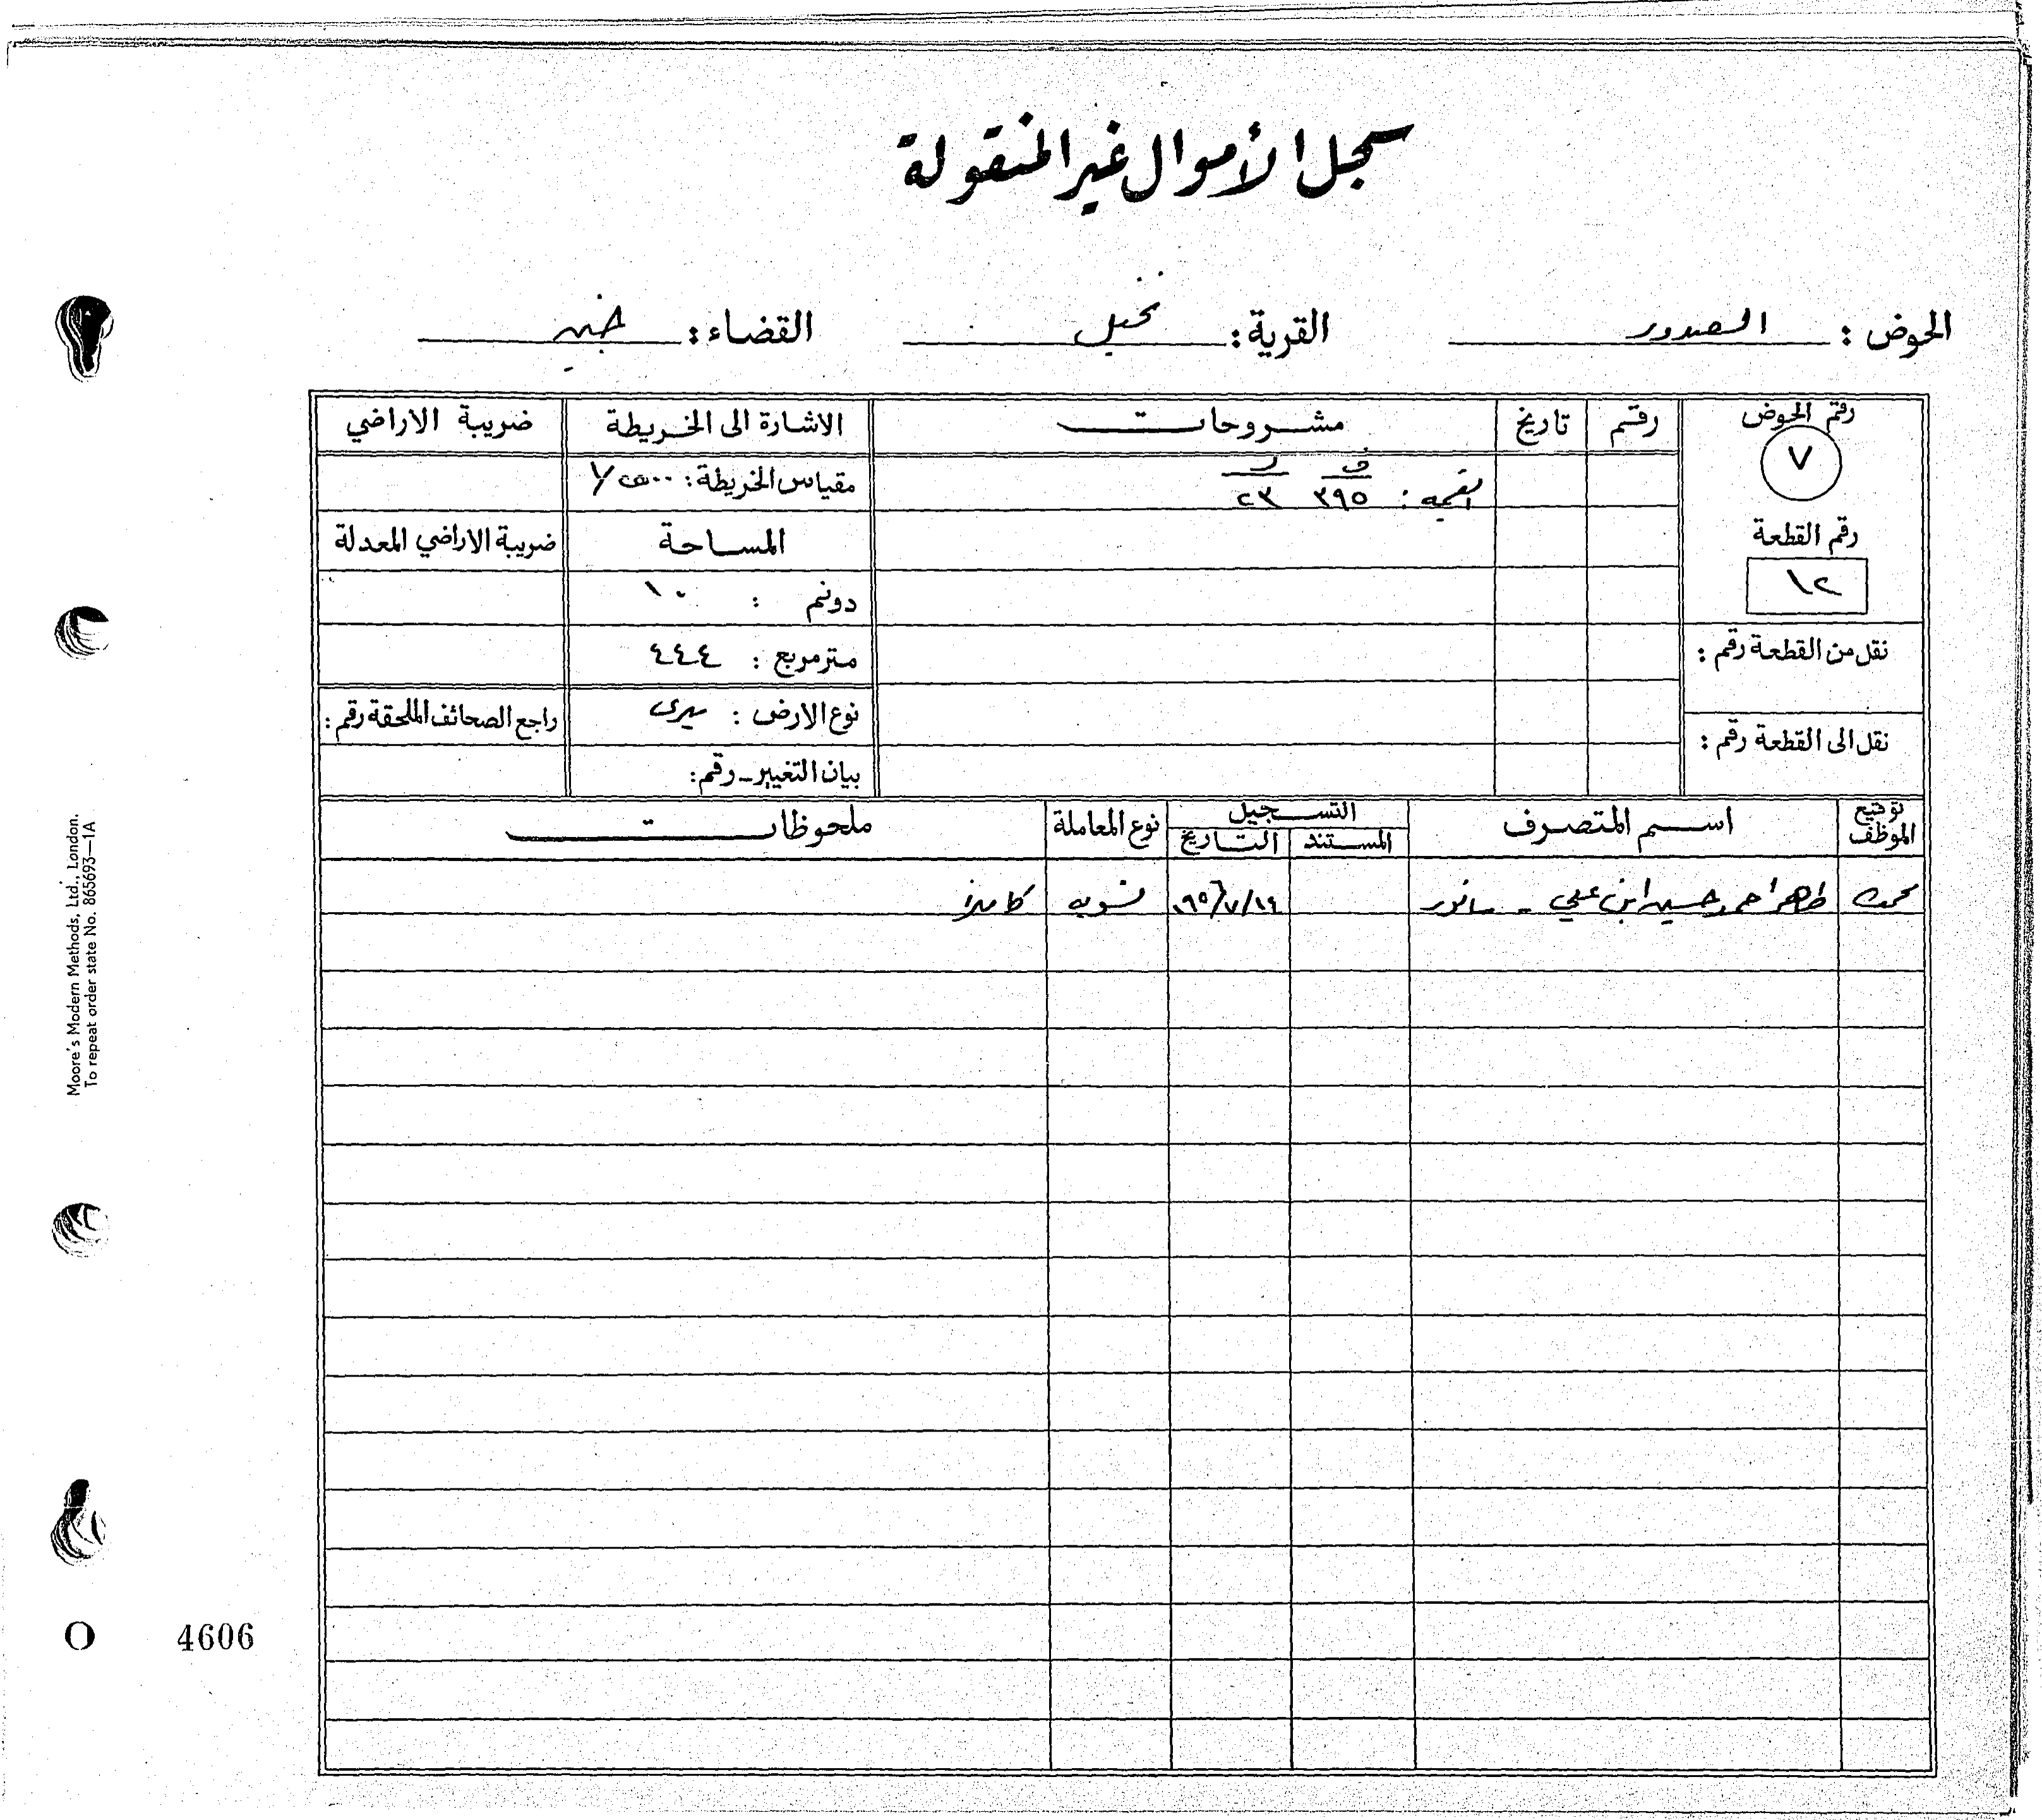 سجل الأموال غير المنقولة
الحوض : الصدور القرية : نخيل القضاء : جنين
رقم الحوض رقم تاريخ مشروحات الاشارة الى الخريطة ضريبة الاراضي
٧ ف د
القيمة : ٣٩٥ ٢٣ مقياس الخريطة : ١/٢٥٠٠
رقم القطعة المساحة ضريبة الاراضي المعدلة
١٢ دونم : ١٠
نقل من القطعة رقم : متر مربع : ٤٤٤
نوع الارض : ميري راجع الصحائف الملحقة رقم :
نقل الى القطعة رقم : بيان التغيير - رقم :
توقيع الموظف اسم المتصرف التسجيل نوع المعاملة ملحوظات
المستند التاريخ
طاهر احمد حسين ابن علي - سانور تسوية كاملا
Moore's Modern Methods, Ltd., London.
To repeat order state No. 865693—1A
4606